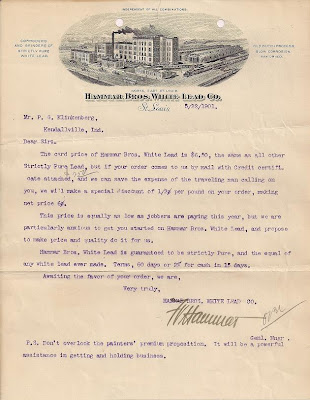 INDEPENDENT OF ALL COMBINATIONS.
CORRODERS
AND GRINDERS OF
STRICTLY PURE
WHITE LEAD.
WORKS, EAST ST. LOUIS.
HAMMAR BROS. WHITE LEAD CO.
St. Louis
5/22/1901.
Mr. P. G. Klinkenberg,
Kendallville, Ind.
Dear Sir:
The card price of Hammar Bros. White Lead is $6.50, the same as all other
Strictly Pure Lead, but if your order comes to us by mail with Credit certifi
cate attached, and we can save the expense of the traveling man calling on
you, we will make a special discount of per pound on your order, making
net
This price is equally as low as jobbers are paying this year, but we are
particularly anxious to get you started on Hammar Bros. White Lead, and propose
to make price and quality do it for us.
Hammar Bros. White Lead is guaranteed to be strictly Pure, and the equal of
any white lead ever made. Terms, 60 days or 2% for cash in 15 days.
Awaiting the favor of your order, we are,
Very truly,
HAMMAR BROS. WHITE LEAD CO.
Hammar
Genl. Mngr.
P.S. Don't overlook the painters' premium proposition. It will be a powerful
assistance in getting and holding business.